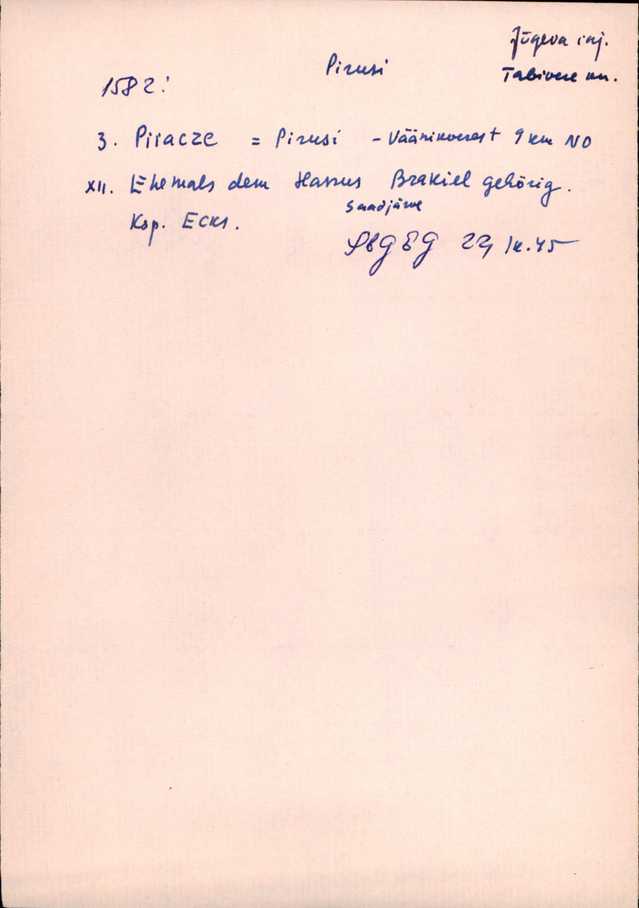 Jõgeva raj.
Pirusi
Tabivere kn.
1582:
3. Piracze = Pirusi - Väänikverest 9 km NO
XII. Ehemals dem Hannus Brakiel gehörig.
Saadjärve
Ksp. Ecks.
SbGEG 1x.45